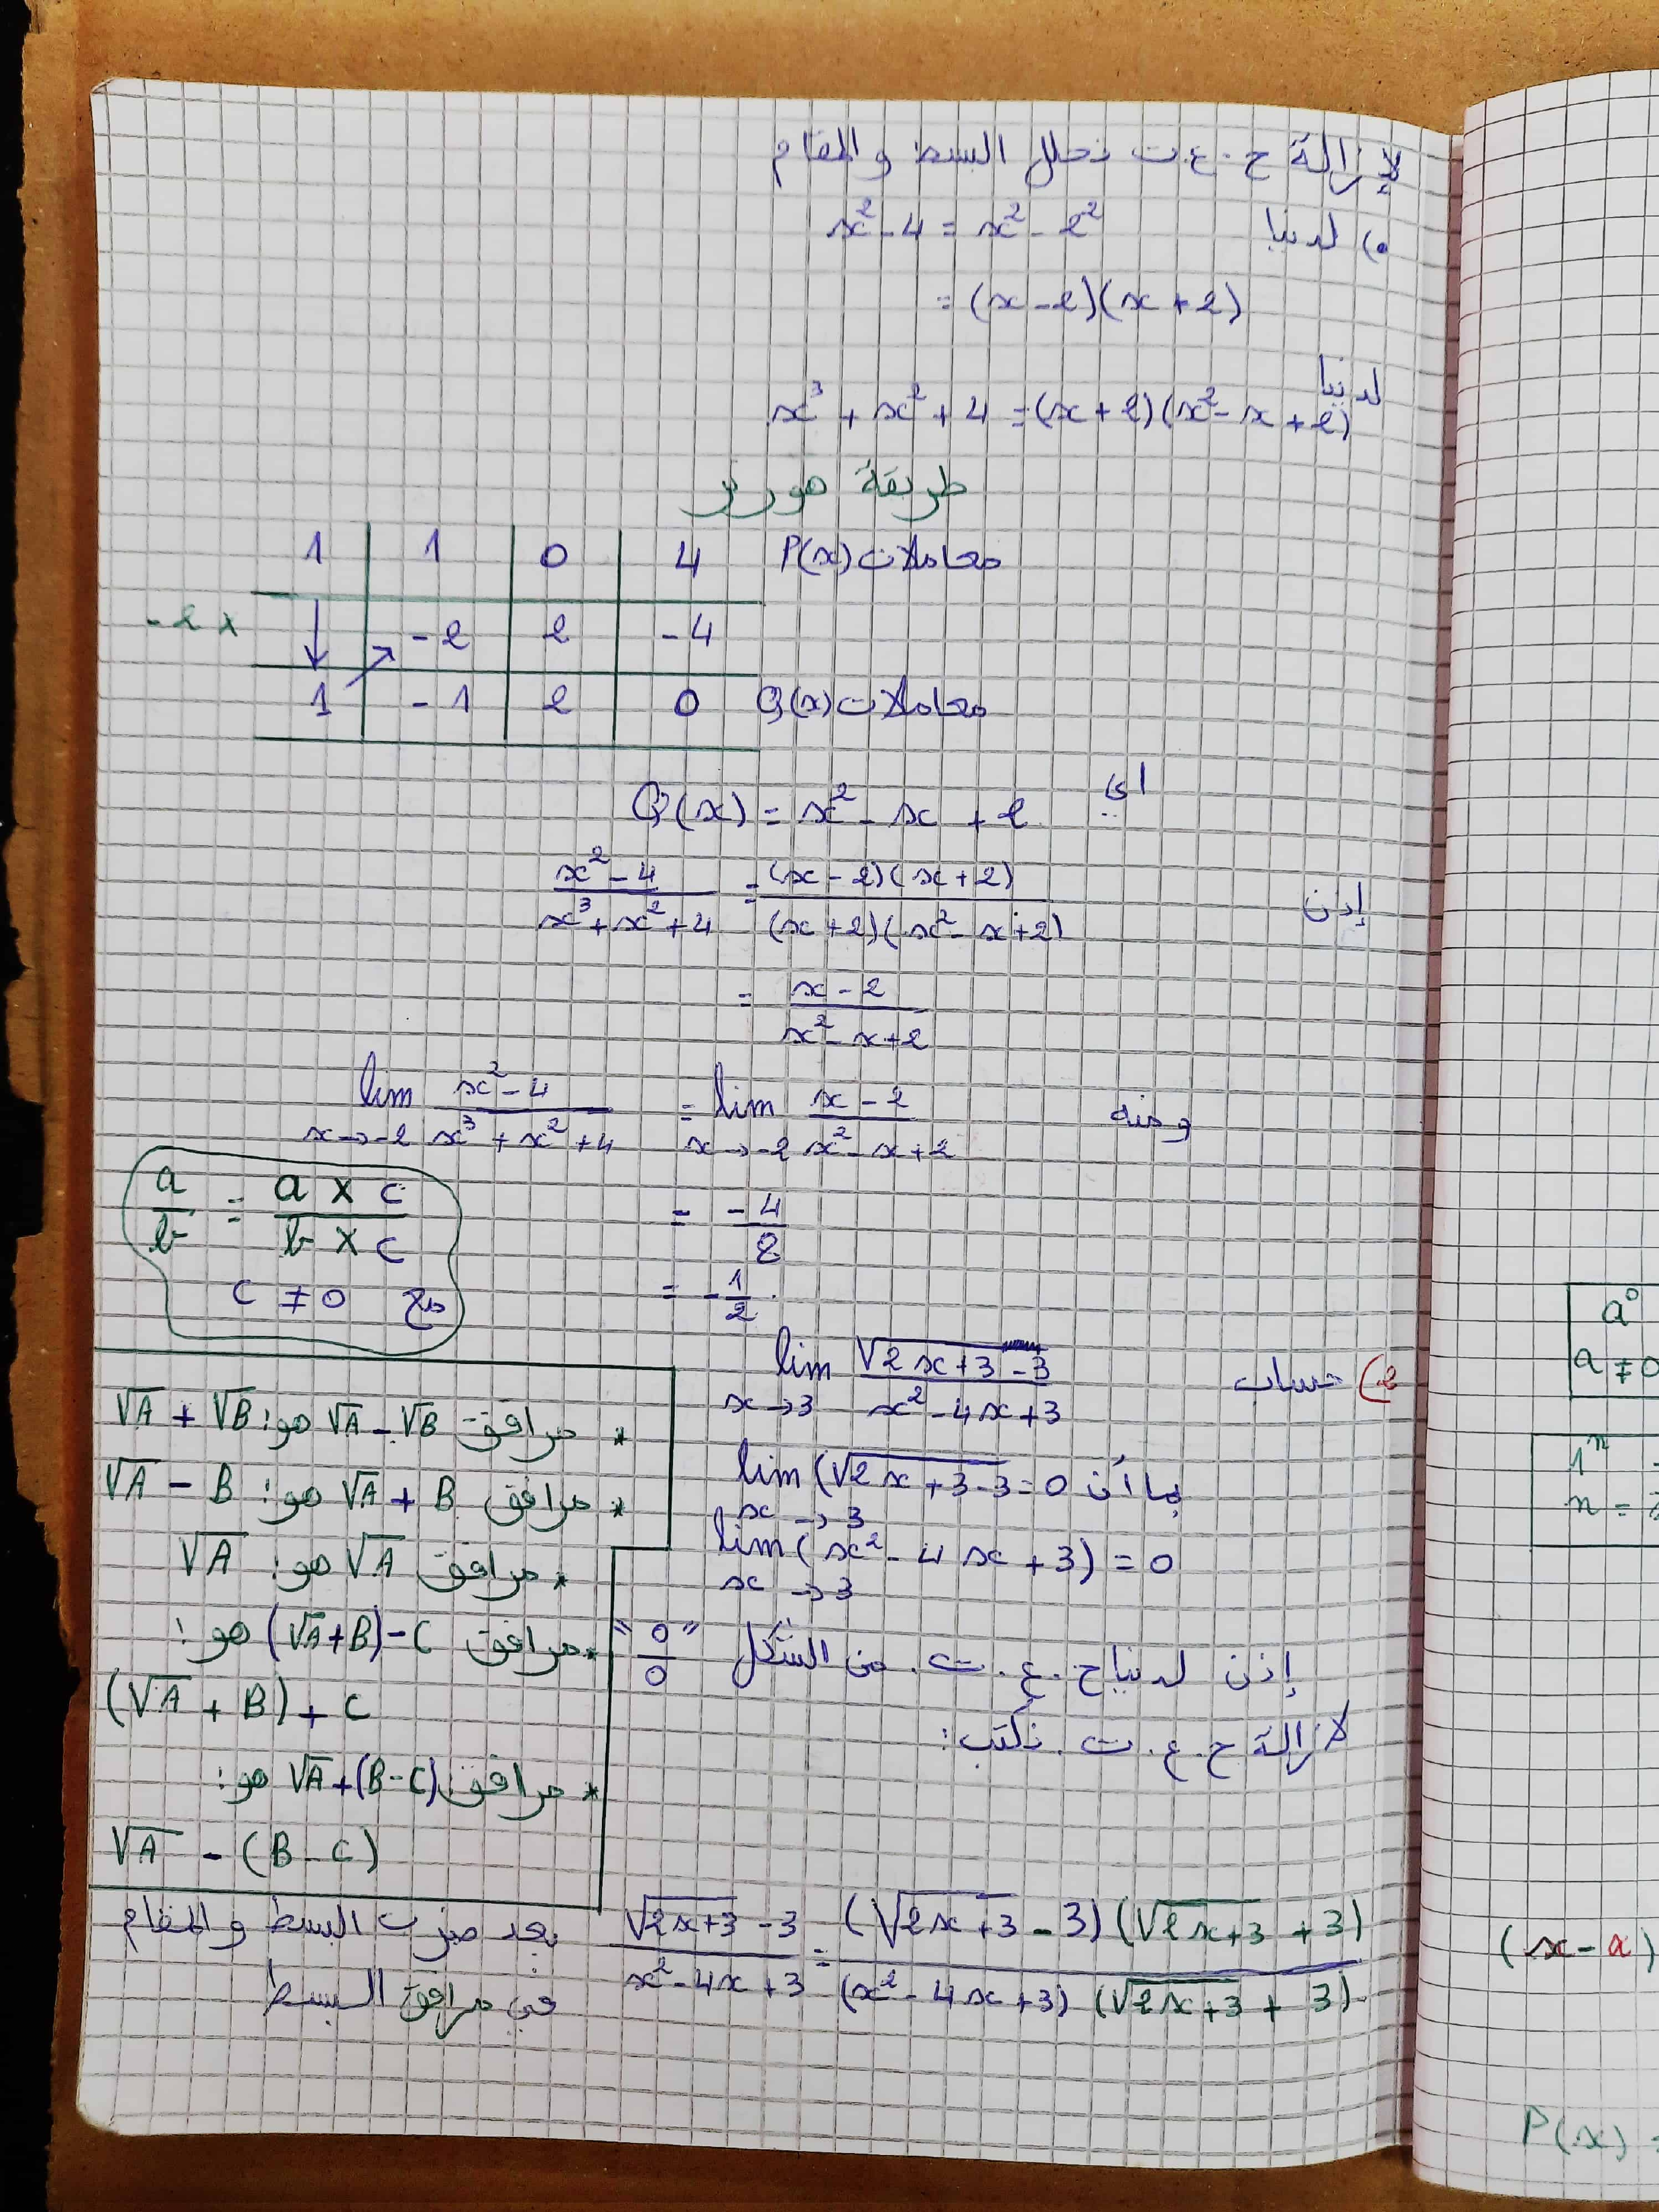 لإزالة ح.ع.ت نحلل البسط والمقام
•) لدينا x² - 4 = x² - 2²
= (x - 2)(x + 2)
لدينا
x³ + x² + 4 = (x + 2)(x² - x + 2)
طريقة هورنر
1 | 1 | 0 | 4 معاملات P(x)
-2 × ↓ | -2 | 2 | -4
1 | -1 | 2 | 0 معاملات Q(x)
أي: Q(x) = x² - x + 2
إذن (x² - 4)/(x³ + x² + 4) = ((x - 2)(x + 2))/((x + 2)(x² - x + 2))
= (x - 2)/(x² - x + 2)
ومنه lim x→-2 (x² - 4)/(x³ + x² + 4) = lim x→-2 (x - 2)/(x² - x + 2)
= -4/8
= -1/2.
a/b = (a × c)/(b × c)
مع c ≠ 0
2) حساب lim x→3 (√(2x+3) - 3)/(x² - 4x + 3)
بما أن lim x→3 (√(2x+3) - 3 = 0
lim x→3 (x² - 4x + 3) = 0
إذن لدينا ح.ع.ت. من الشكل "0/0"
لازالة ح.ع.ت. نكتب:
* مرافق √A - √B هو: √A + √B
* مرافق √A + B هو: √A - B
* مرافق √A هو: √A
* مرافق (√A + B) - C هو:
(√A + B) + C
* مرافق √A + (B - C) هو:
√A - (B - C)
(√(2x+3) - 3)/(x² - 4x + 3) = ((√(2x+3) - 3)(√(2x+3) + 3))/((x² - 4x + 3)(√(2x+3) + 3)).
بعد ضرب البسط والمقام
في مرافق البسط
a⁰
a ≠ 0
1ⁿ
n =
(x - a)
P(x) =